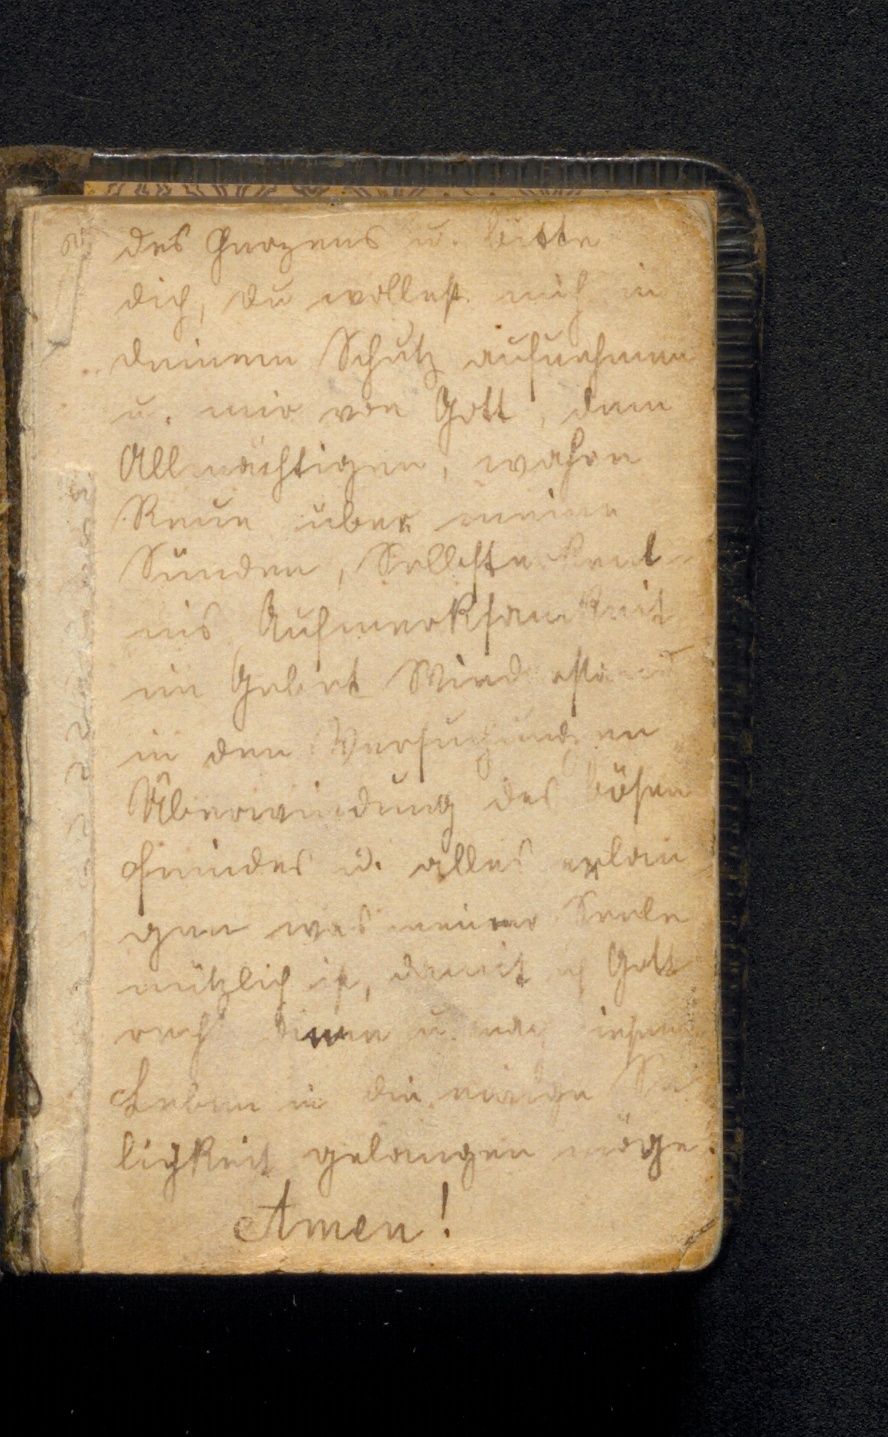 des Herzens u. bitte
dich, du wollest mich in
deinen Schutz aufnehmen
u. mir von Gott, dem
Allmächtigen, wahre
Reue über meine
Sünden, Selbsterkent-
nis Aufmerksamkeit
im Gebet
in den Versuchungen
Überwindung des bösen
Feindes u. alles erlan
gen was meiner Seele
nützlich ist, damit ich Gott
u. nach diesem
Leben in die ewige Se
ligkeit gelangen möge.
Amen!